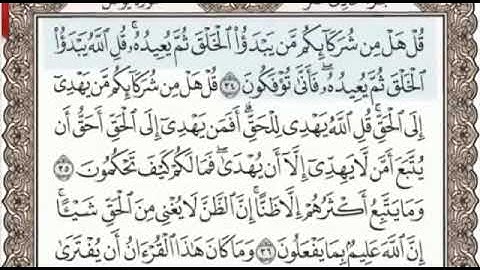 قُلْ هَلْ مِن شُرَكَآئِكُم مَّن يَبْدَؤُا۟ ٱلْخَلْقَ ثُمَّ يُعِيدُهُۥ ۚ قُلِ ٱللَّهُ يَبْدَؤُا۟
ٱلْخَلْقَ ثُمَّ يُعِيدُهُۥ ۖ فَأَنَّىٰ تُؤْفَكُونَ ٣٤ قُلْ هَلْ مِن شُرَكَآئِكُم مَّن يَهْدِىٓ
إِلَى ٱلْحَقِّ ۚ قُلِ ٱللَّهُ يَهْدِى لِلْحَقِّ ۗ أَفَمَن يَهْدِىٓ إِلَى ٱلْحَقِّ أَحَقُّ أَن
يُتَّبَعَ أَمَّن لَّا يَهِدِّىٓ إِلَّآ أَن يُهْدَىٰ ۖ فَمَا لَكُمْ كَيْفَ تَحْكُمُونَ ٣٥
وَمَا يَتَّبِعُ أَكْثَرُهُمْ إِلَّا ظَنًّا ۚ إِنَّ ٱلظَّنَّ لَا يُغْنِى مِنَ ٱلْحَقِّ شَيْـًٔا ۚ
إِنَّ ٱللَّهَ عَلِيمٌۢ بِمَا يَفْعَلُونَ ٣٦ وَمَا كَانَ هَـٰذَا ٱلْقُرْءَانُ أَن يُفْتَرَىٰ